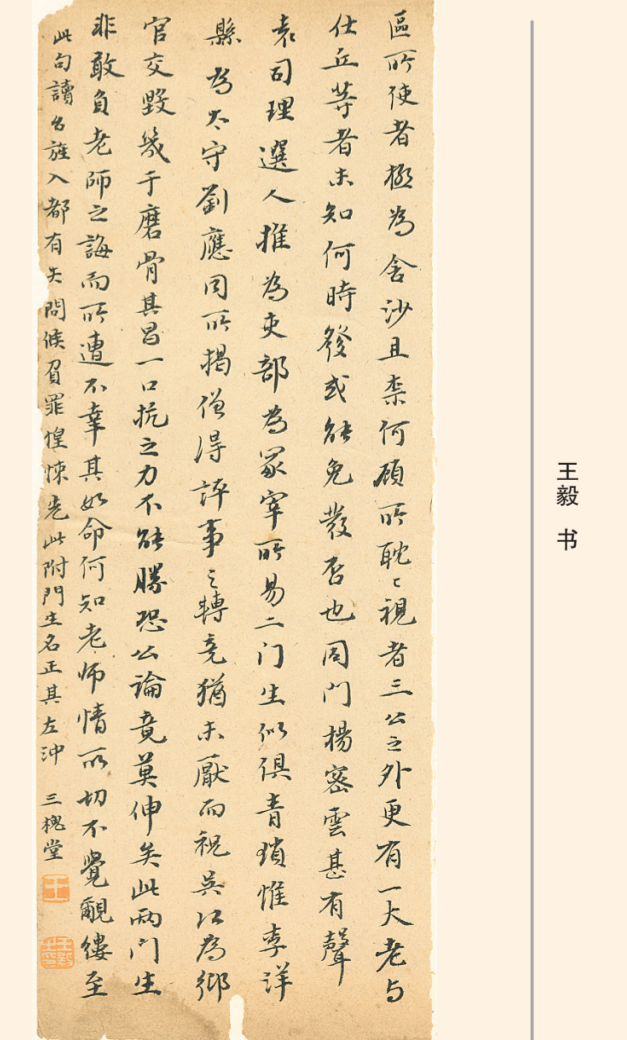 區所使者極為含沙且柰何頋所耽〻視者三公之外更有一大老与
仕丘等者未知何時發或能免發否也同門楊密雲甚有聲
袁司理選人推為吏部為冢宰所易二门生似俱青瑣惟李洋
縣為太守劉應同所揭僧得評事之轉竟猶未厭而視吳江為鄉
官交毀幾于磨骨其昌一口抗之力不能勝恐公論竟莫伸矣此兩门生
非敢負老師之誨而所遭不幸其如命何知老师情所切不覺覼縷至
此句讀名旌入都有矢問候負罪惶悚先此附門生名正其左沖 三槐堂
王毅 书